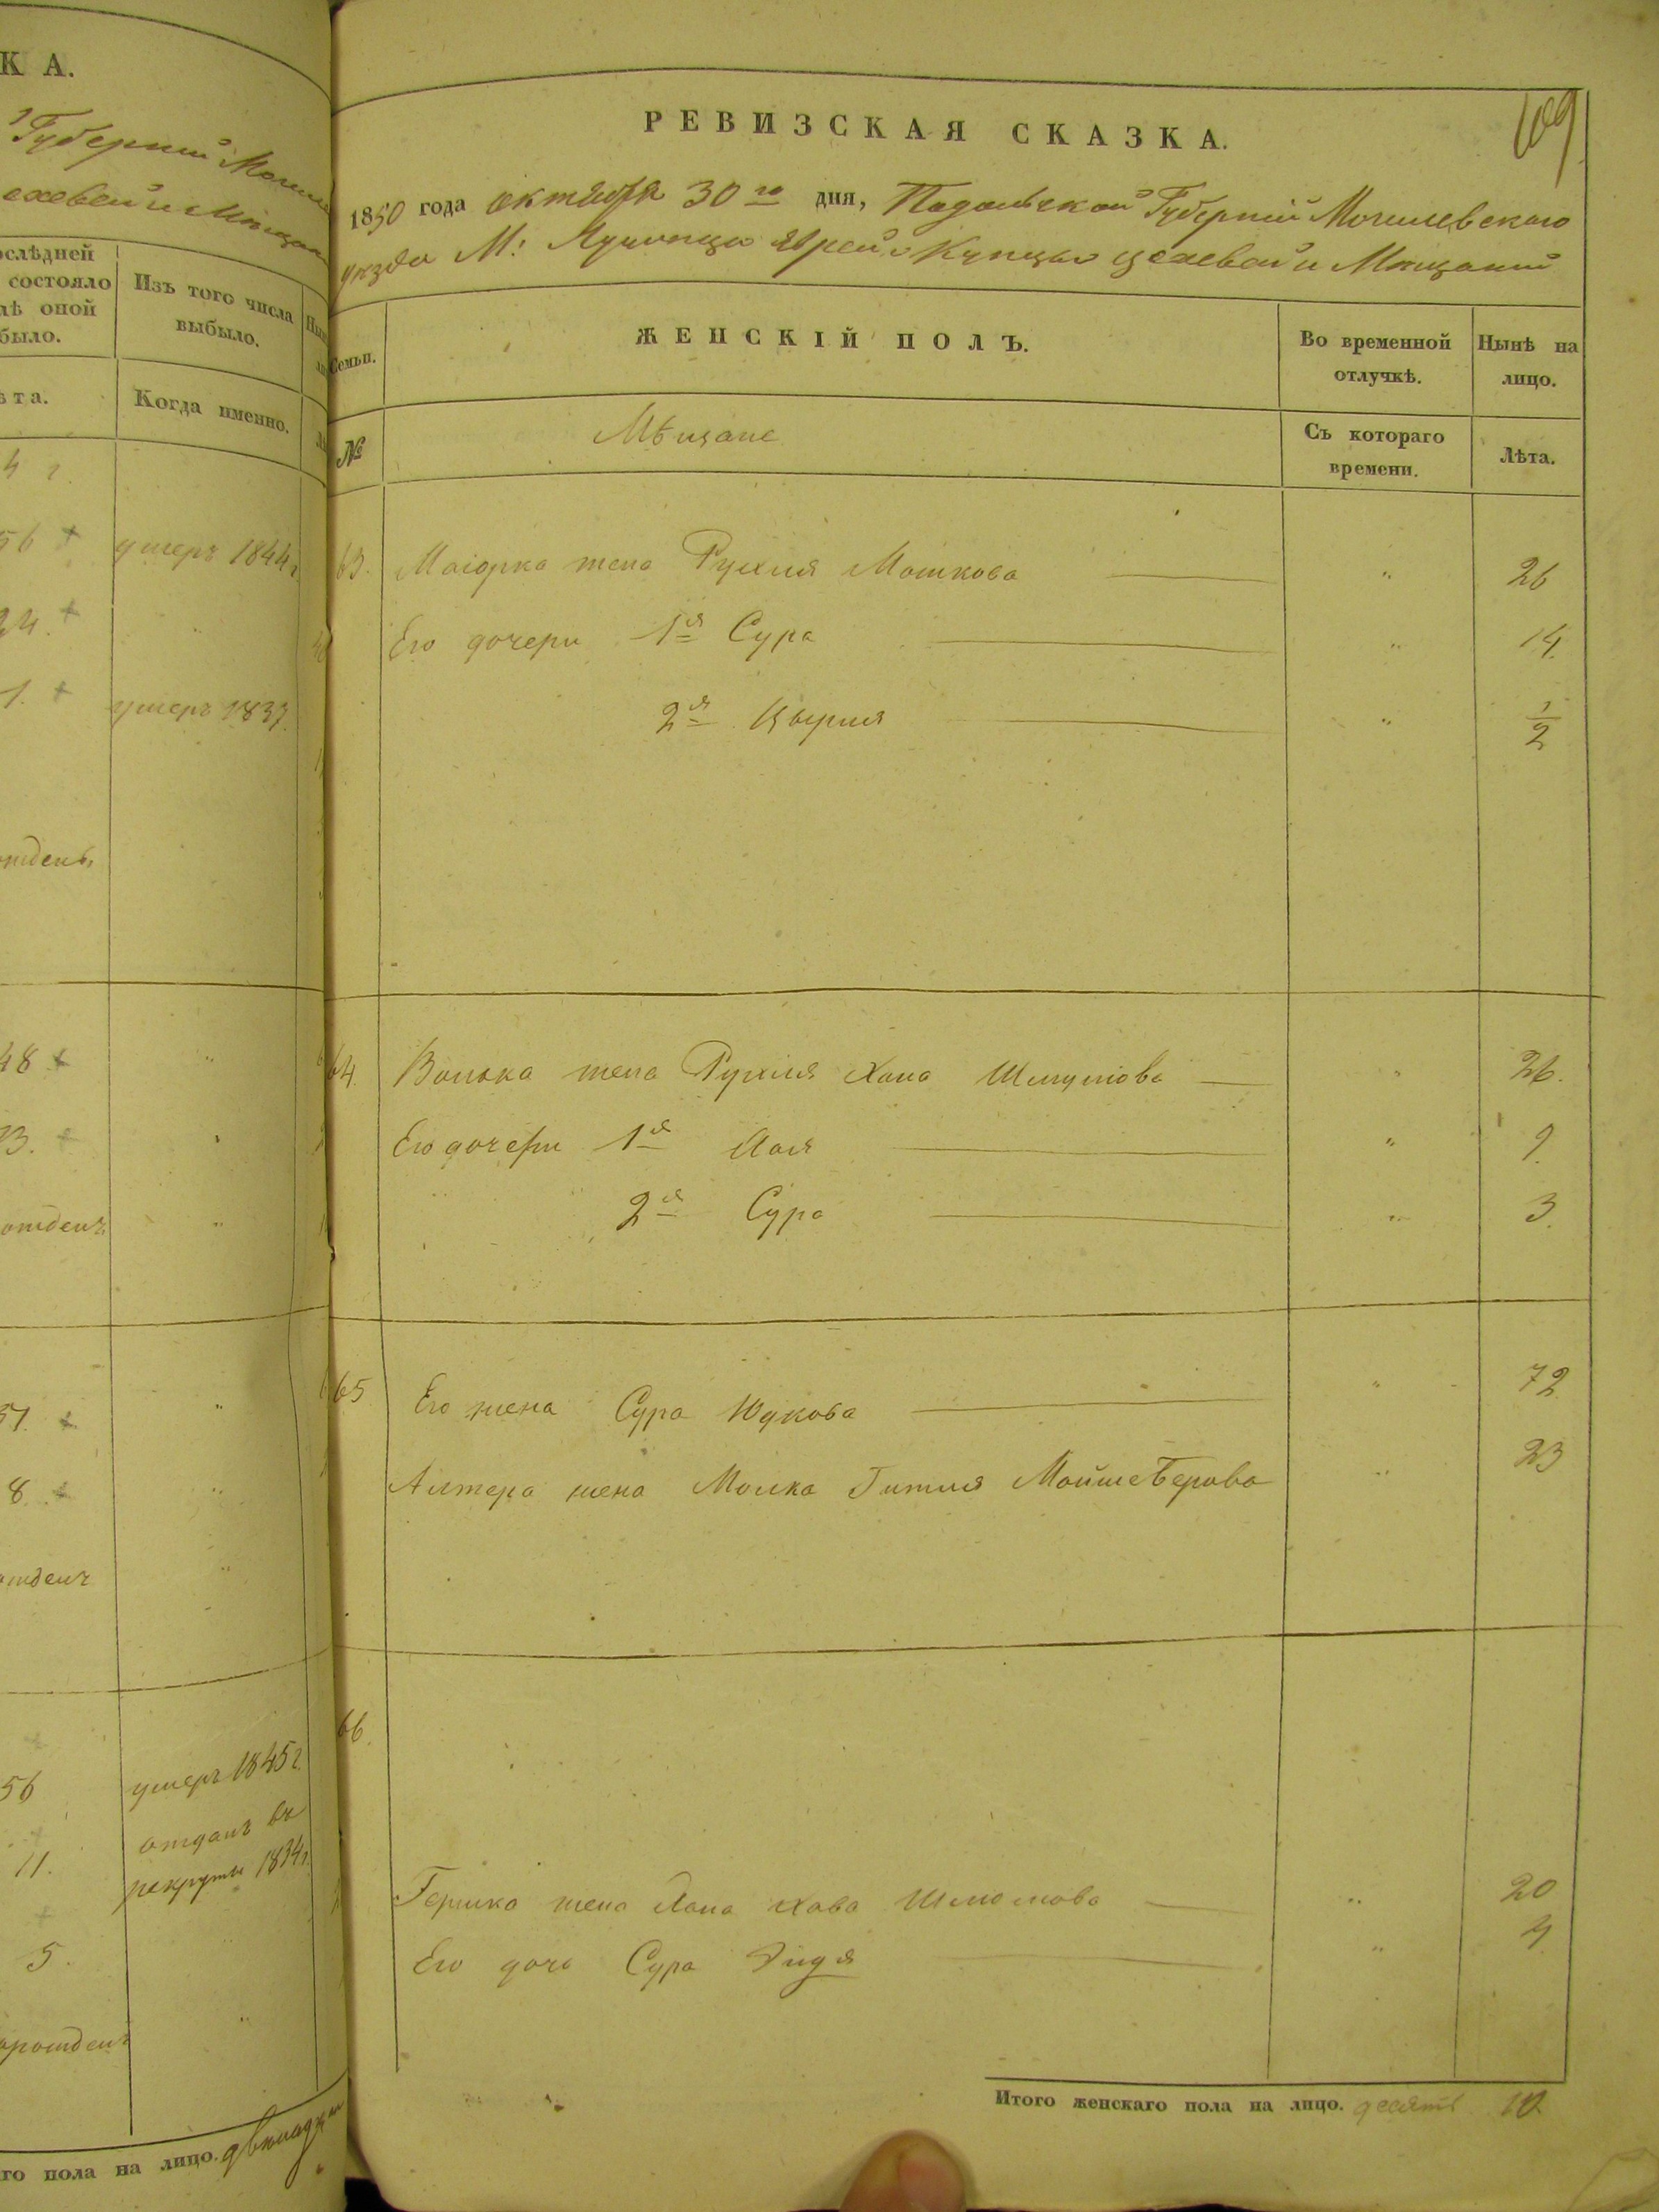 К А.
Губерніи Могил
ехевой и Мѣщан
ослѣдней
состояло
лѣ оной
было.
Изъ того числа
выбыло.
ѣ т а.
Когда именно.
56 умеръ 1844 г
24.
1. умеръ 1837.
ожденъ
48
ожденъ
8.
ожденъ
56 умеръ 1845 г.
11. отданъ въ
рекруты 1834 г.
5.
рожденъ
го пола на лицо.
109
РЕВИЗСКАЯ СКАЗКА.
1850 года октября 30го дня, Подольской Губерніи Могилевскаго
уѣзда М: Лучинца Еврей Купцы цехевой и Мѣщаній
Семьи. ЖЕНСКІЙ ПОЛЪ. Во временной отлучкѣ. Нынѣ на лицо.
№ Мѣщане Съ котораго времени. Лѣта.
63. Маіорка жена Рухля Мошкова " 26
Его дочери 1я Сура " 14.
2я " 1/2
64. Волька жена Рухля Хана Шмулова " 26.
Его дочери 1я " 9.
2я Сура " 3.
65 Его жена Сура Юдкова " 72
Алтера жена Малка Гитля МойшеБерова " 23
66.
Гершка жена Хана Хава Шмолиова " 20
Его дочь Сура " 4
Итого женскаго пола на лицо. десять 10.